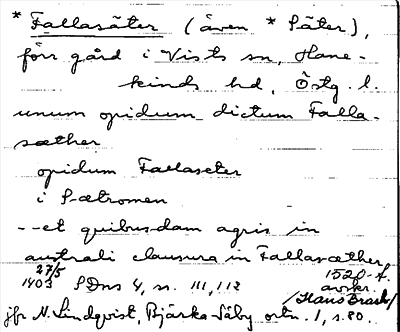 * Fallasäter (även * Säter),
förr gård i Vists sn, Hane-
kinds hd, Östg. l.
unum opidum dictum Falla-
sæther
opidum Fallaseter
i Sætromen
--et quibusdam agris in
australi clausura in Fallasæther
27/5 1403 SDns 4, sn. 111, 112
1520-t. avskr.
/Hans Brask/
jfr N. Lindqvist, Bjärka-Säby ortn. 1, s. 80.